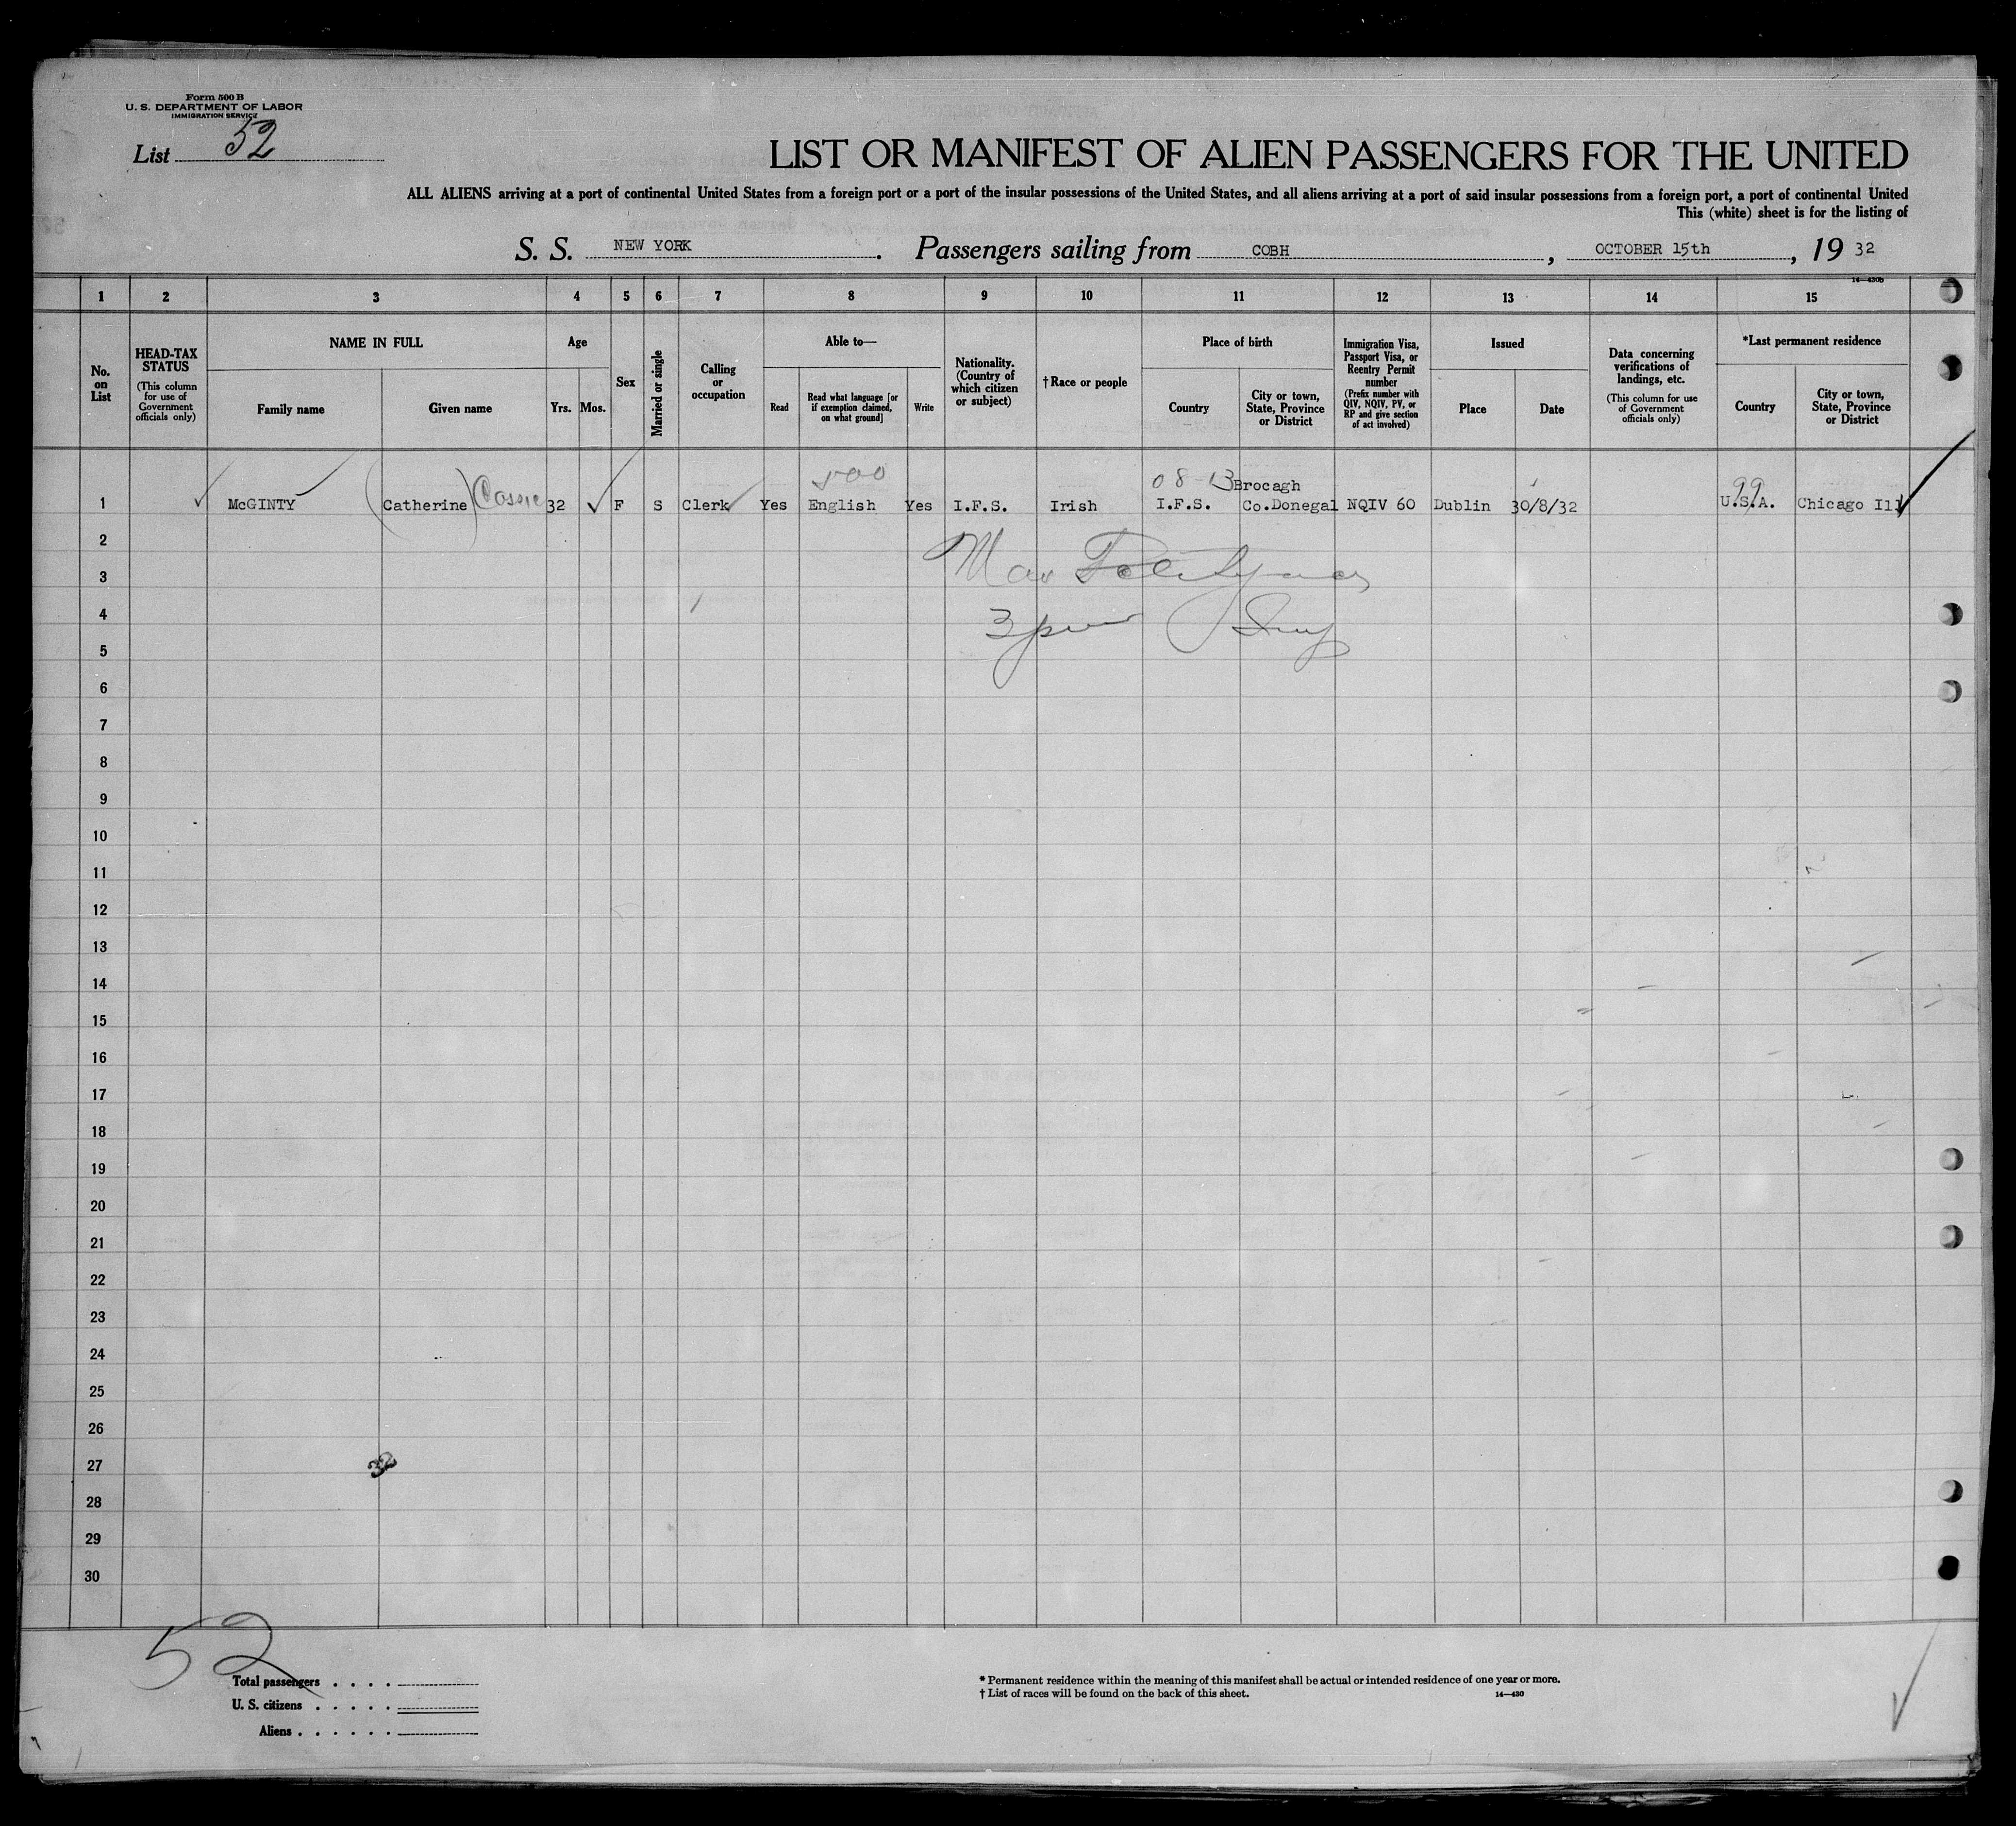 Form 500 B
U. S. DEPARTMENT OF LABOR
IMMIGRATION SERVICE
List 52
LIST OR MANIFEST OF ALIEN PASSENGERS FOR THE UNITED
ALL ALIENS arriving at a port of continental United States from a foreign port or a port of the insular possessions of the United States, and all aliens arriving at a port of said insular possessions from a foreign port, a port of continental United
This (white) sheet is for the listing of
S. S. NEW YORK. Passengers sailing from COBH, OCTOBER 15th, 19 32
14—430B
1 2 3 4 5 6 7 8 9 10 11 12 13 14 15
No. on List
HEAD-TAX STATUS
(This column for use of Government officials only)
NAME IN FULL
Family name
Given name
Age
Yrs.
Mos.
Sex
Married or single
Calling or occupation
Able to—
Read
Read what language [or if exemption claimed, on what ground]
Write
Nationality. (Country of which citizen or subject)
†Race or people
Place of birth
Country
City or town, State, Province or District
Immigration Visa, Passport Visa, or Reentry Permit number
(Prefix number with QIV, NQIV, PV, or RP and give section of act involved)
Issued
Place
Date
Data concerning verifications of landings, etc.
(This column for use of Government officials only)
*Last permanent residence
Country
City or town, State, Province or District
500 08-13 Brocagh 99
1 McGINTY (Catherine) Cassie 32 F S Clerk Yes English Yes I.F.S. Irish I.F.S. Co.Donegal NQIV 60 Dublin 30/8/32 U.S.A. Chicago Ill
2
3
4
5
6
7
8
9
10
11
12
13
14
15
16
17
18
19
20
21
22
23
24
25
26
27
28
29
30
52
Total passengers . . . .
U. S. citizens . . . . .
Aliens . . . . . .
* Permanent residence within the meaning of this manifest shall be actual or intended residence of one year or more.
† List of races will be found on the back of this sheet. 14—430